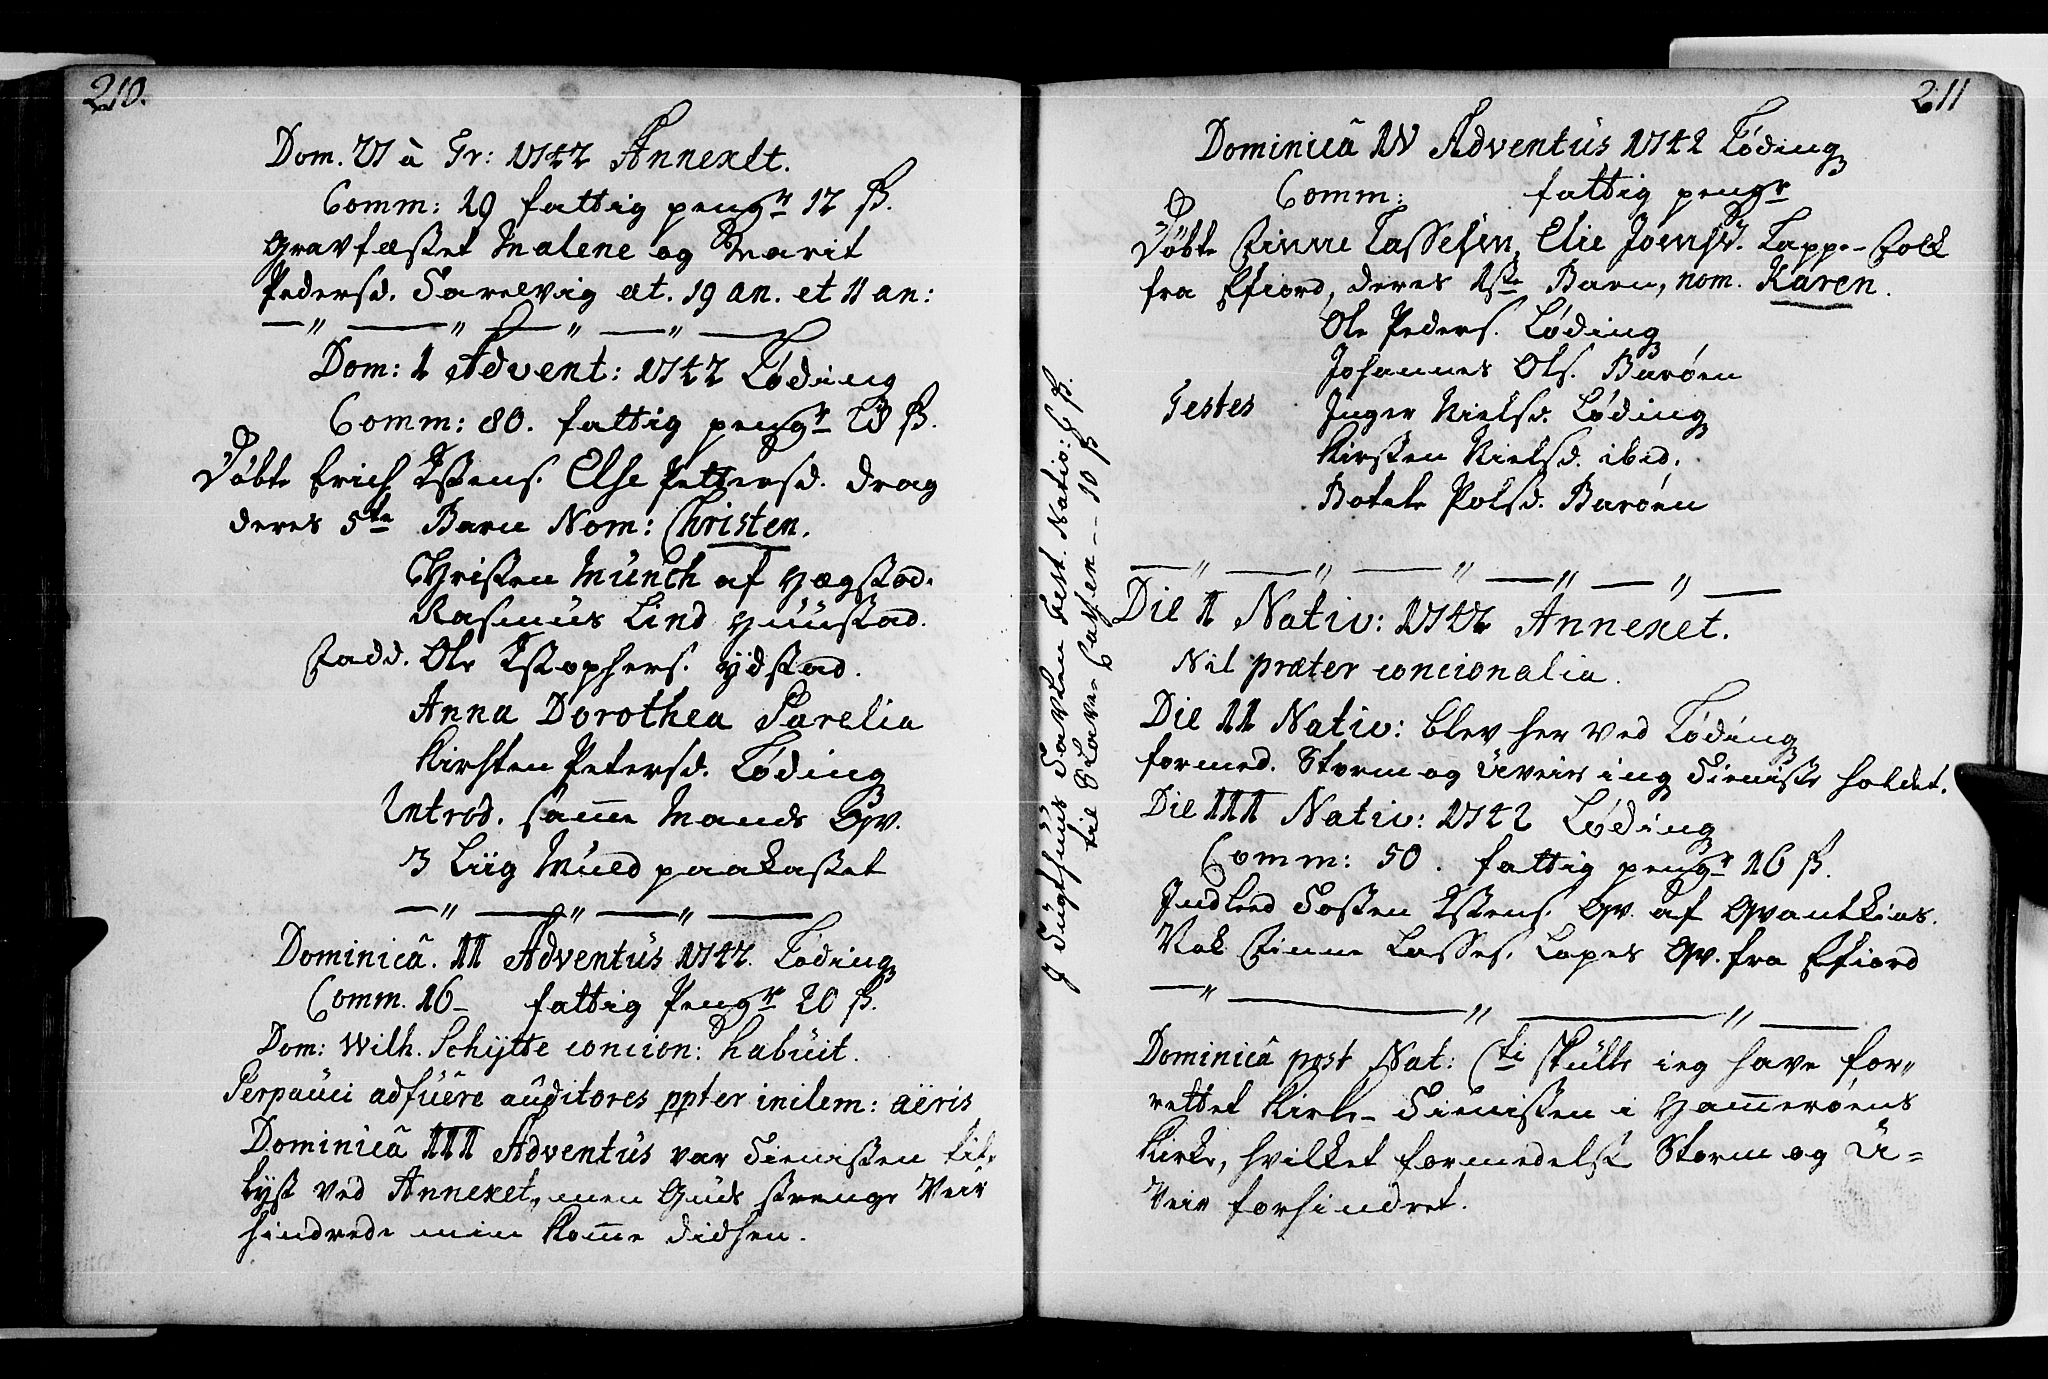 210.
Dom. 27 à Tr: 1742 Annexet.
Comm: 19 fattig pengr 12 ß.
Gravfæstet Malene og Marit
Pedersd. Sarelvig æt. 19 an. et 11 an:
Dom: 1 Advent: 1742 Løding
Comm: 80. fattig pengr 23 ß.
Døbt Erich Istens. Else Pettersd. Drag
deres 5te Barn Nom: Christen.
Christen Münch af Hægstad.
Rasmus Lind Hunstad.
Fadd. Ole Xstophers. Ydstad.
Anna Dorothea Parelia
Kirsten Petersd. Løding
Introd. samme Mands Qv.
3 Liig Muld paakastet
Dominicâ. II Adventus 1742. Løding
Comm. 16 fattig Pengr 20 ß.
Dom: Wilh. Schytte concion: habuit.
Perpauci adfuêre auditores ppter inclem: aëris
Dominicâ III Adventus var Tienisten til-
lyst ved Annexet, men Guds strenge Veir
hindrede min komme didhen.
211
Dominicâ IV Adventus 1742 Løding
Comm: fattig pengr
Døbt Finne Lassesen, Elie Joensd. Lappe-Folk
fra Efiord, deres 1ste Barn, nom. Karen.
Ole Peders. Løding
Johannes Ols. Barøen
Testes Inger Nielsd. Løding
Kirsten Nielsd. ibid.
Botele Polsd. Barøen
Die I Nativ: 1742 Annexet.
Nil præter concionalia.
Die II Nativ: blev her ved Løding
formed. Storm og Uveir ing Tieniste holdet.
Die III Nativ: 1742 Løding
Comm: 50. fattig pengr 16 ß.
Indleed Tosten Istens. Qv. af Qvantkias.
Nok Finne Lasses. Lapes Qv. fra Efiord
Dominicâ post Nat: Cti skulle ieg have for-
rettet Kirke-Tienisten i Hammerøens
Kirke, hvilket formedelst Storm og U-
Veir forhindret.
J Tugthuus Tavlen Fest. Nativ: 8 ß.
til Slave-Cassen - 10 ß